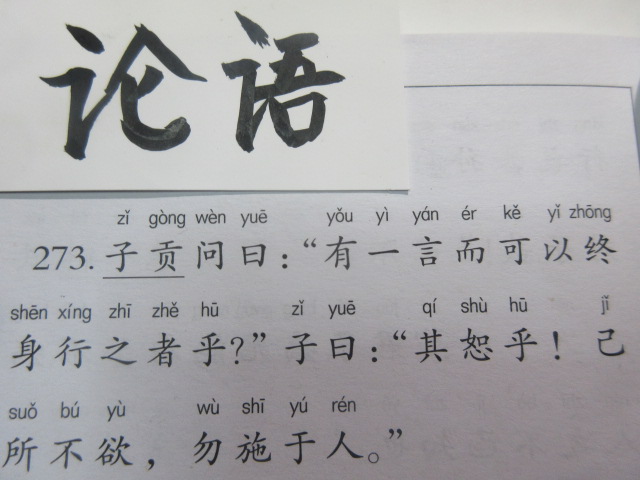 论语
zǐ gòng wèn yuē yǒu yì yán ér kě yǐ zhōng
273. 子贡问曰：“有一言而可以终
shēn xíng zhī zhě hū zǐ yuē qí shù hū jǐ
身行之者乎？”子曰：“其恕乎！己
suǒ bú yù wù shī yú rén
所不欲，勿施于人。”